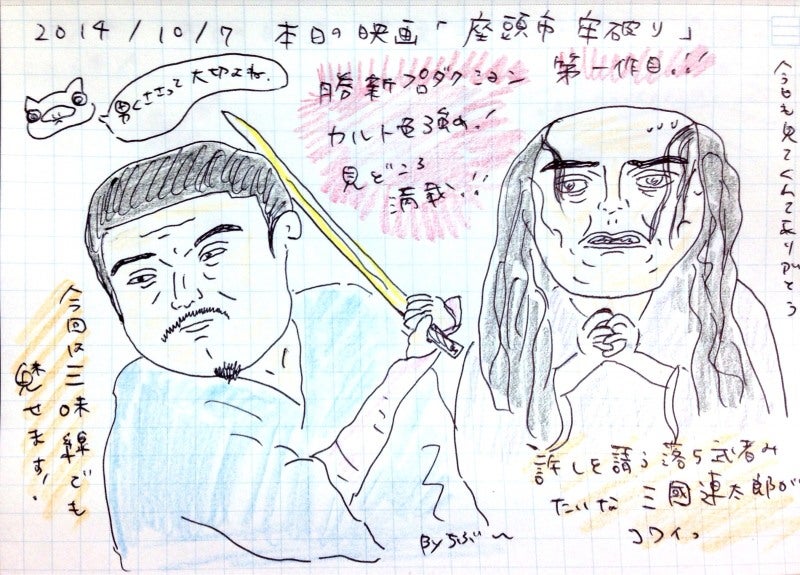 2014/10/7 本日の映画「座頭市 牢破り」
男くささって大切よね。
勝新プロダクション
第一作目!!
カルト色強め!
見どころ
満載!!
今日も見てくれてありがとう
今回は三味線でも
魅せます!
許しを請う落ち武者み
たいな 三國連太郎が
コワイ。
By